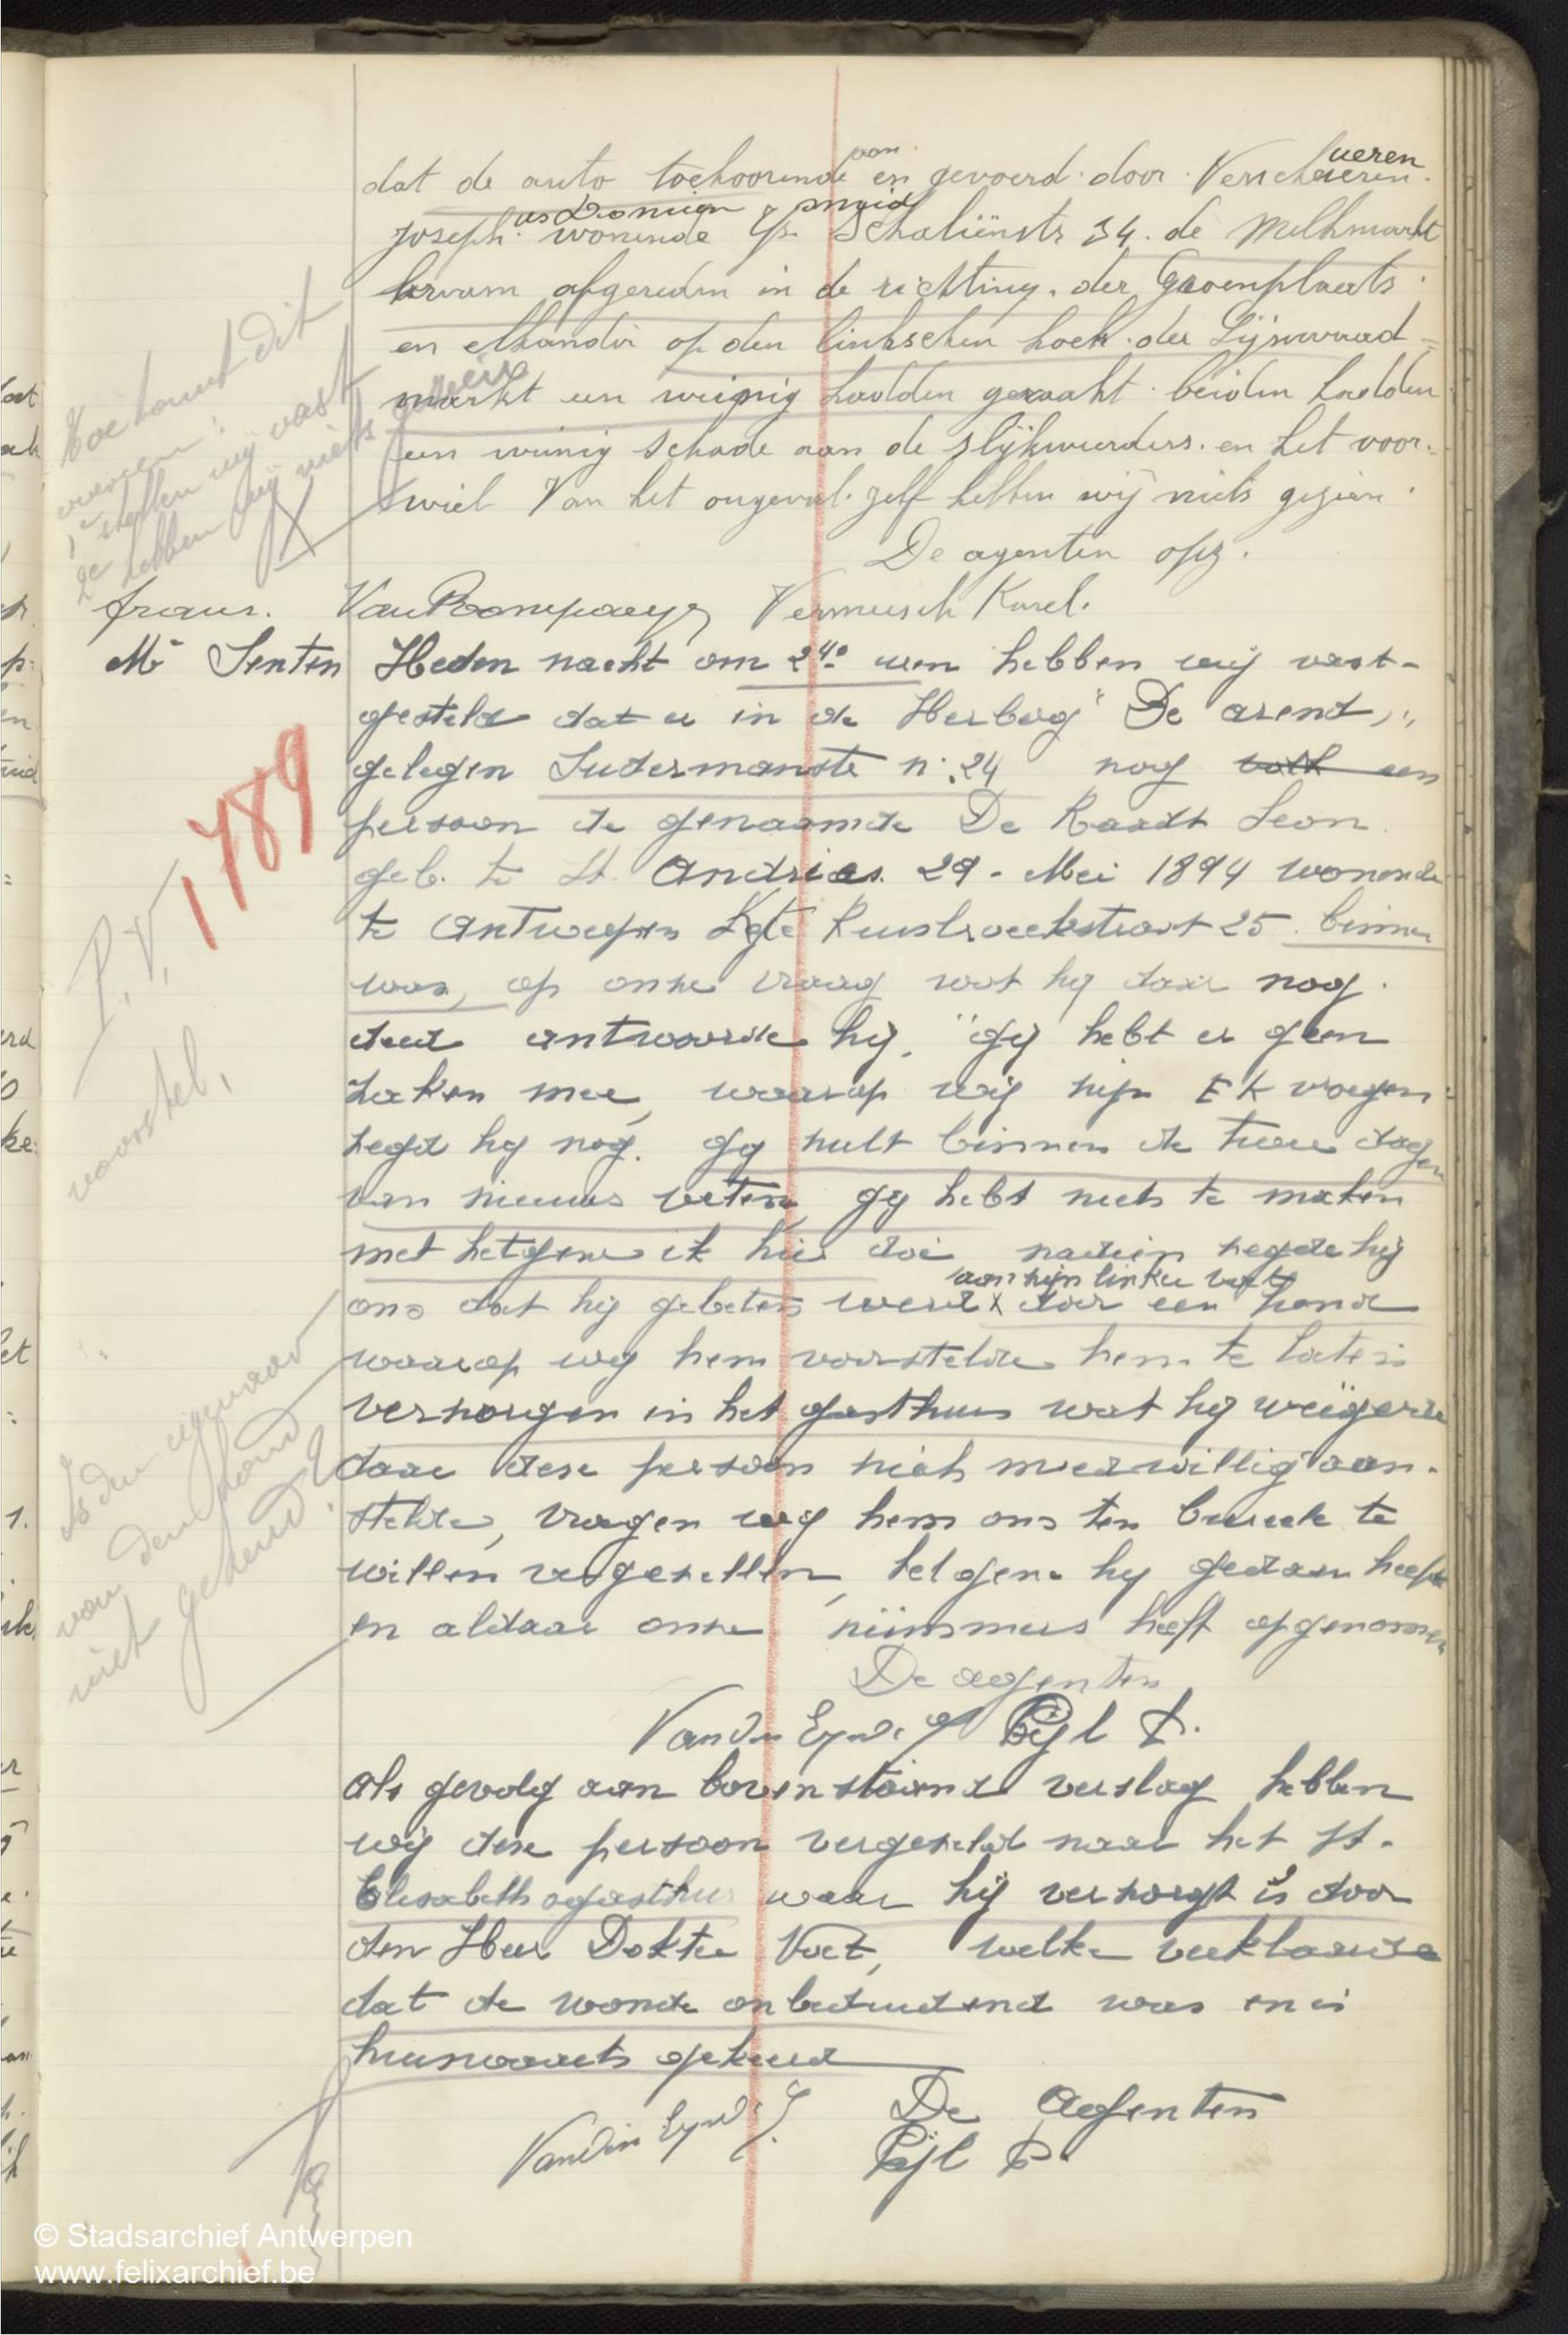 dat de auto toehoorende van en gevoerd door Verschueren ueren
Joseph wonende Schaliënstr 34. de Melkmarkt
kwam afgereden in de richting der Groenplaats
en elkander op den linkschen hoek der Lijnwaad=
markt een weinig hadden geraakt. beiden hadden
een weinig schade aan de slijkweerders. en het voor=
wiel Van het ongeval zelf hebben wij niets gezien.
De agenten opz.
Van Rompaey Vermeesch Karel.
Hoe komt dit
overeen?
1e stellen wij vast
2e hebben wij niets gezien
X
frans.
Mr Senten
Heden nacht om 2 40 uren hebben wij vast-
gesteld dat er in de Herberg "De arend,,
gelegen Sudermanstr n: 24 nog volk een
persoon de genaamde De Raadt Leon
geb. te St. Andries 29 - Mei 1894 wonende
te Antwerpen Kgte Ruusbroeckstraat 25. binnen
was, op onze vraag wat hij daar nog
deed antwoorde hij, "gij hebt er geen
zaken mee, waarop wij zijn E K vroegen
zegd hij nog. gij zult binnen de twee dagen
van nieuws weten, gij hebt niets te maken
met hetgene ik hier doe nadien zegde hij
aan zijn linker voet
ons dat hij gebeten werd X door een hond
waarop wij hem voorstelde hem te laten
verzorgen in het gasthuis wat hij weigerde
daar deze persoon zich moedwillig aan-
stelde, vragen wij hem ons ten bureele te
willen vergezellen, hetgene hij gedaan heeft
en aldaar onze nummers heeft opgenomen
De agenten
Van den Eynde J Pijl P.
P.V. 1789
voorstel,
Is den eigenaar
van den hond
niet gekend?
Als gevolg aan bovenstaand verslag hebben
wij deze persoon vergezeld naar het St.
Elisabethsgasthuis waar hij verzorgt is door
den Heer Dokter Voet, welke verklaarde
dat de wonde onbeduidend was en is
huiswaarts gekeerd
De Agenten
Van den Eynde J. Pijl P.
© Stadsarchief Antwerpen
www.felixarchief.be